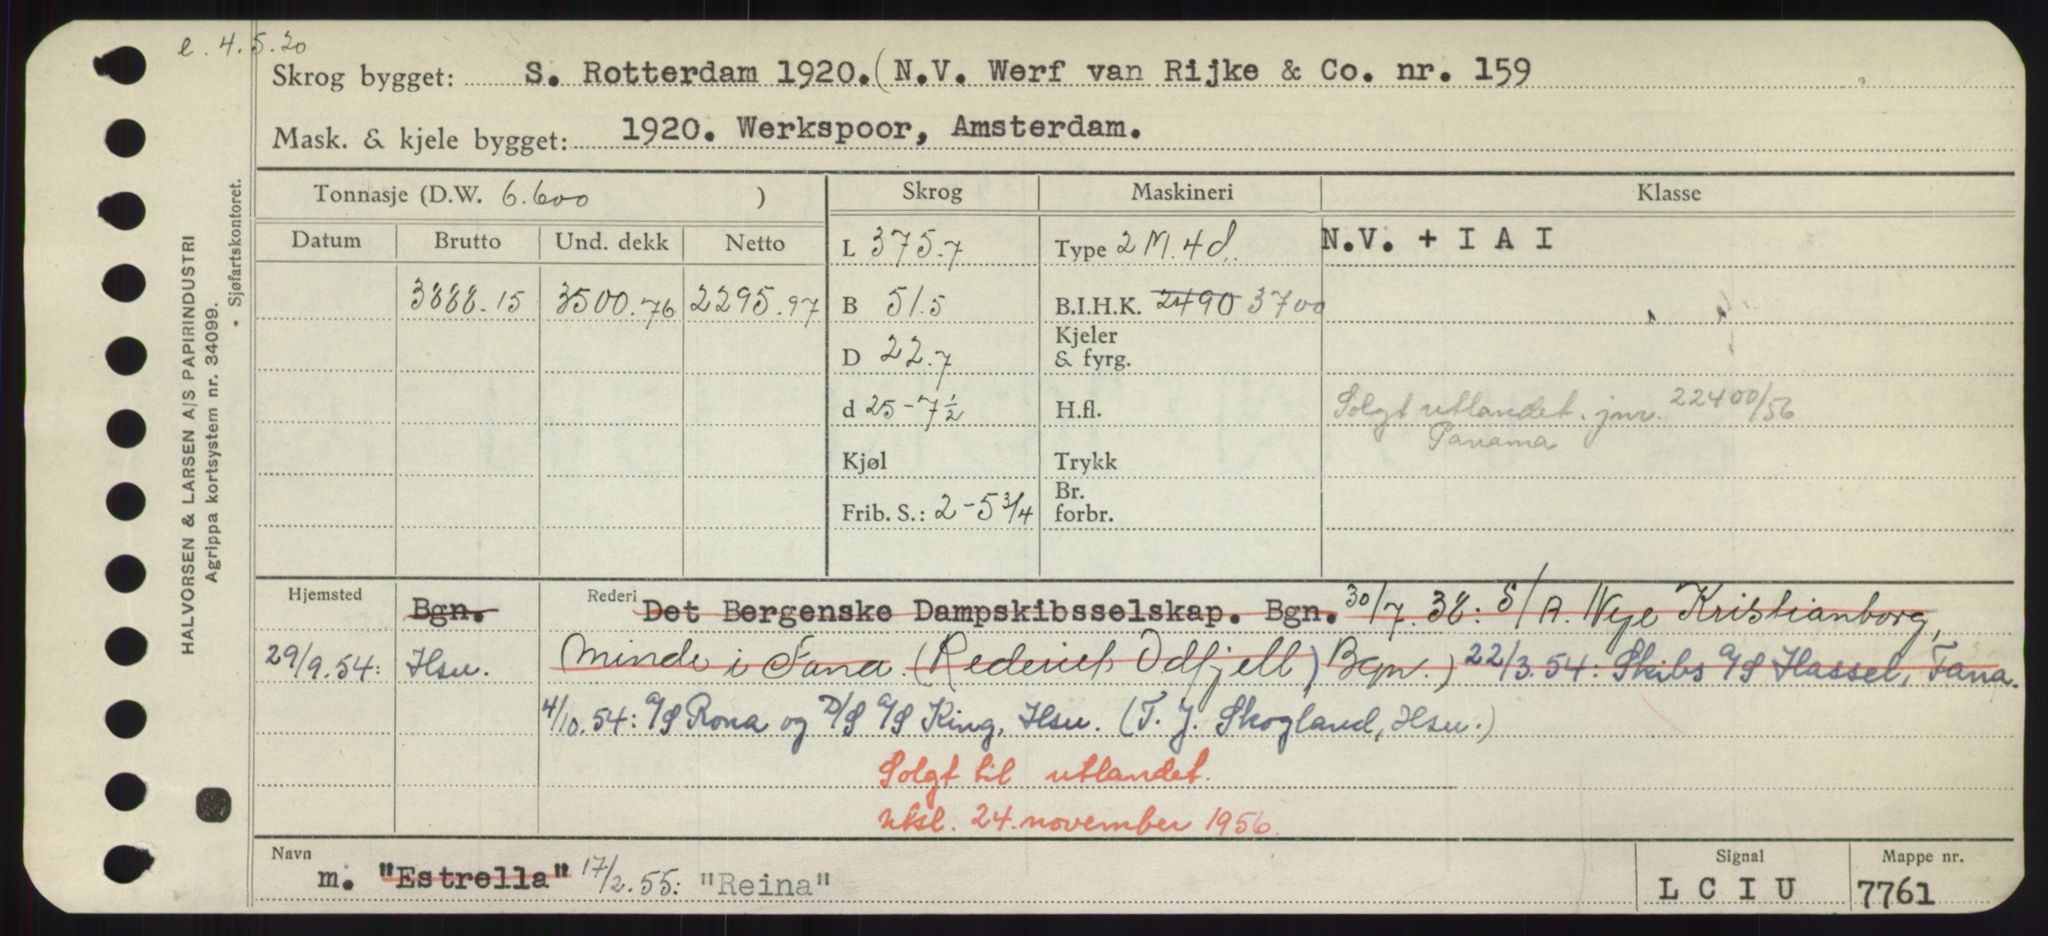 e. 4.5.20
Skrog bygget: S. Rotterdam 1920. (N.V. Werf van Rijke & Co. nr. 159
Mask. & kjele bygget: 1920. Werkspoor, Amsterdam.
HALVORSEN & LARSEN A/S PAPIRINDUSTRI
Agrippa kortsystem nr. 34099.
• Sjøfartskontoret.
Tonnasje (D.W. 6.600 ) Skrog Maskineri Klasse
Datum Brutto Und. dekk Netto
L 375.7 Type 2 M. 4 d. N.V. + I A I
3888.15 3500.76 2295.97 B 51.5 B.I.H.K. 2490 3700
D 22.7 Kjeler & fyrg.
d 25-7½ H.fl. Solgt utlandet. jnr. 22400/56
Panama
Kjøl Trykk
Frib. S.: 2-5 3/4 Br. forbr.
Hjemsted Bgn. Rederi Det Bergenske Dampskibsselskap. Bgn. 30/7.38: S/A. Nye Kristianborg,
29/9.54: Hsu. Minde i Fana. (Rederiet Odfjell, Bgn.) 22/3.54: Skibs A/S Hassel, Fana.
4/10.54: A/S Rona og D/S A/S King, Hsu. (T. J. Skogland, Hsu.)
Solgt til utlandet.
Utsl. 24. november 1956.
Navn m. "Estrella" 17/2.55: "Reina" Signal L C I U Mappe nr. 7761